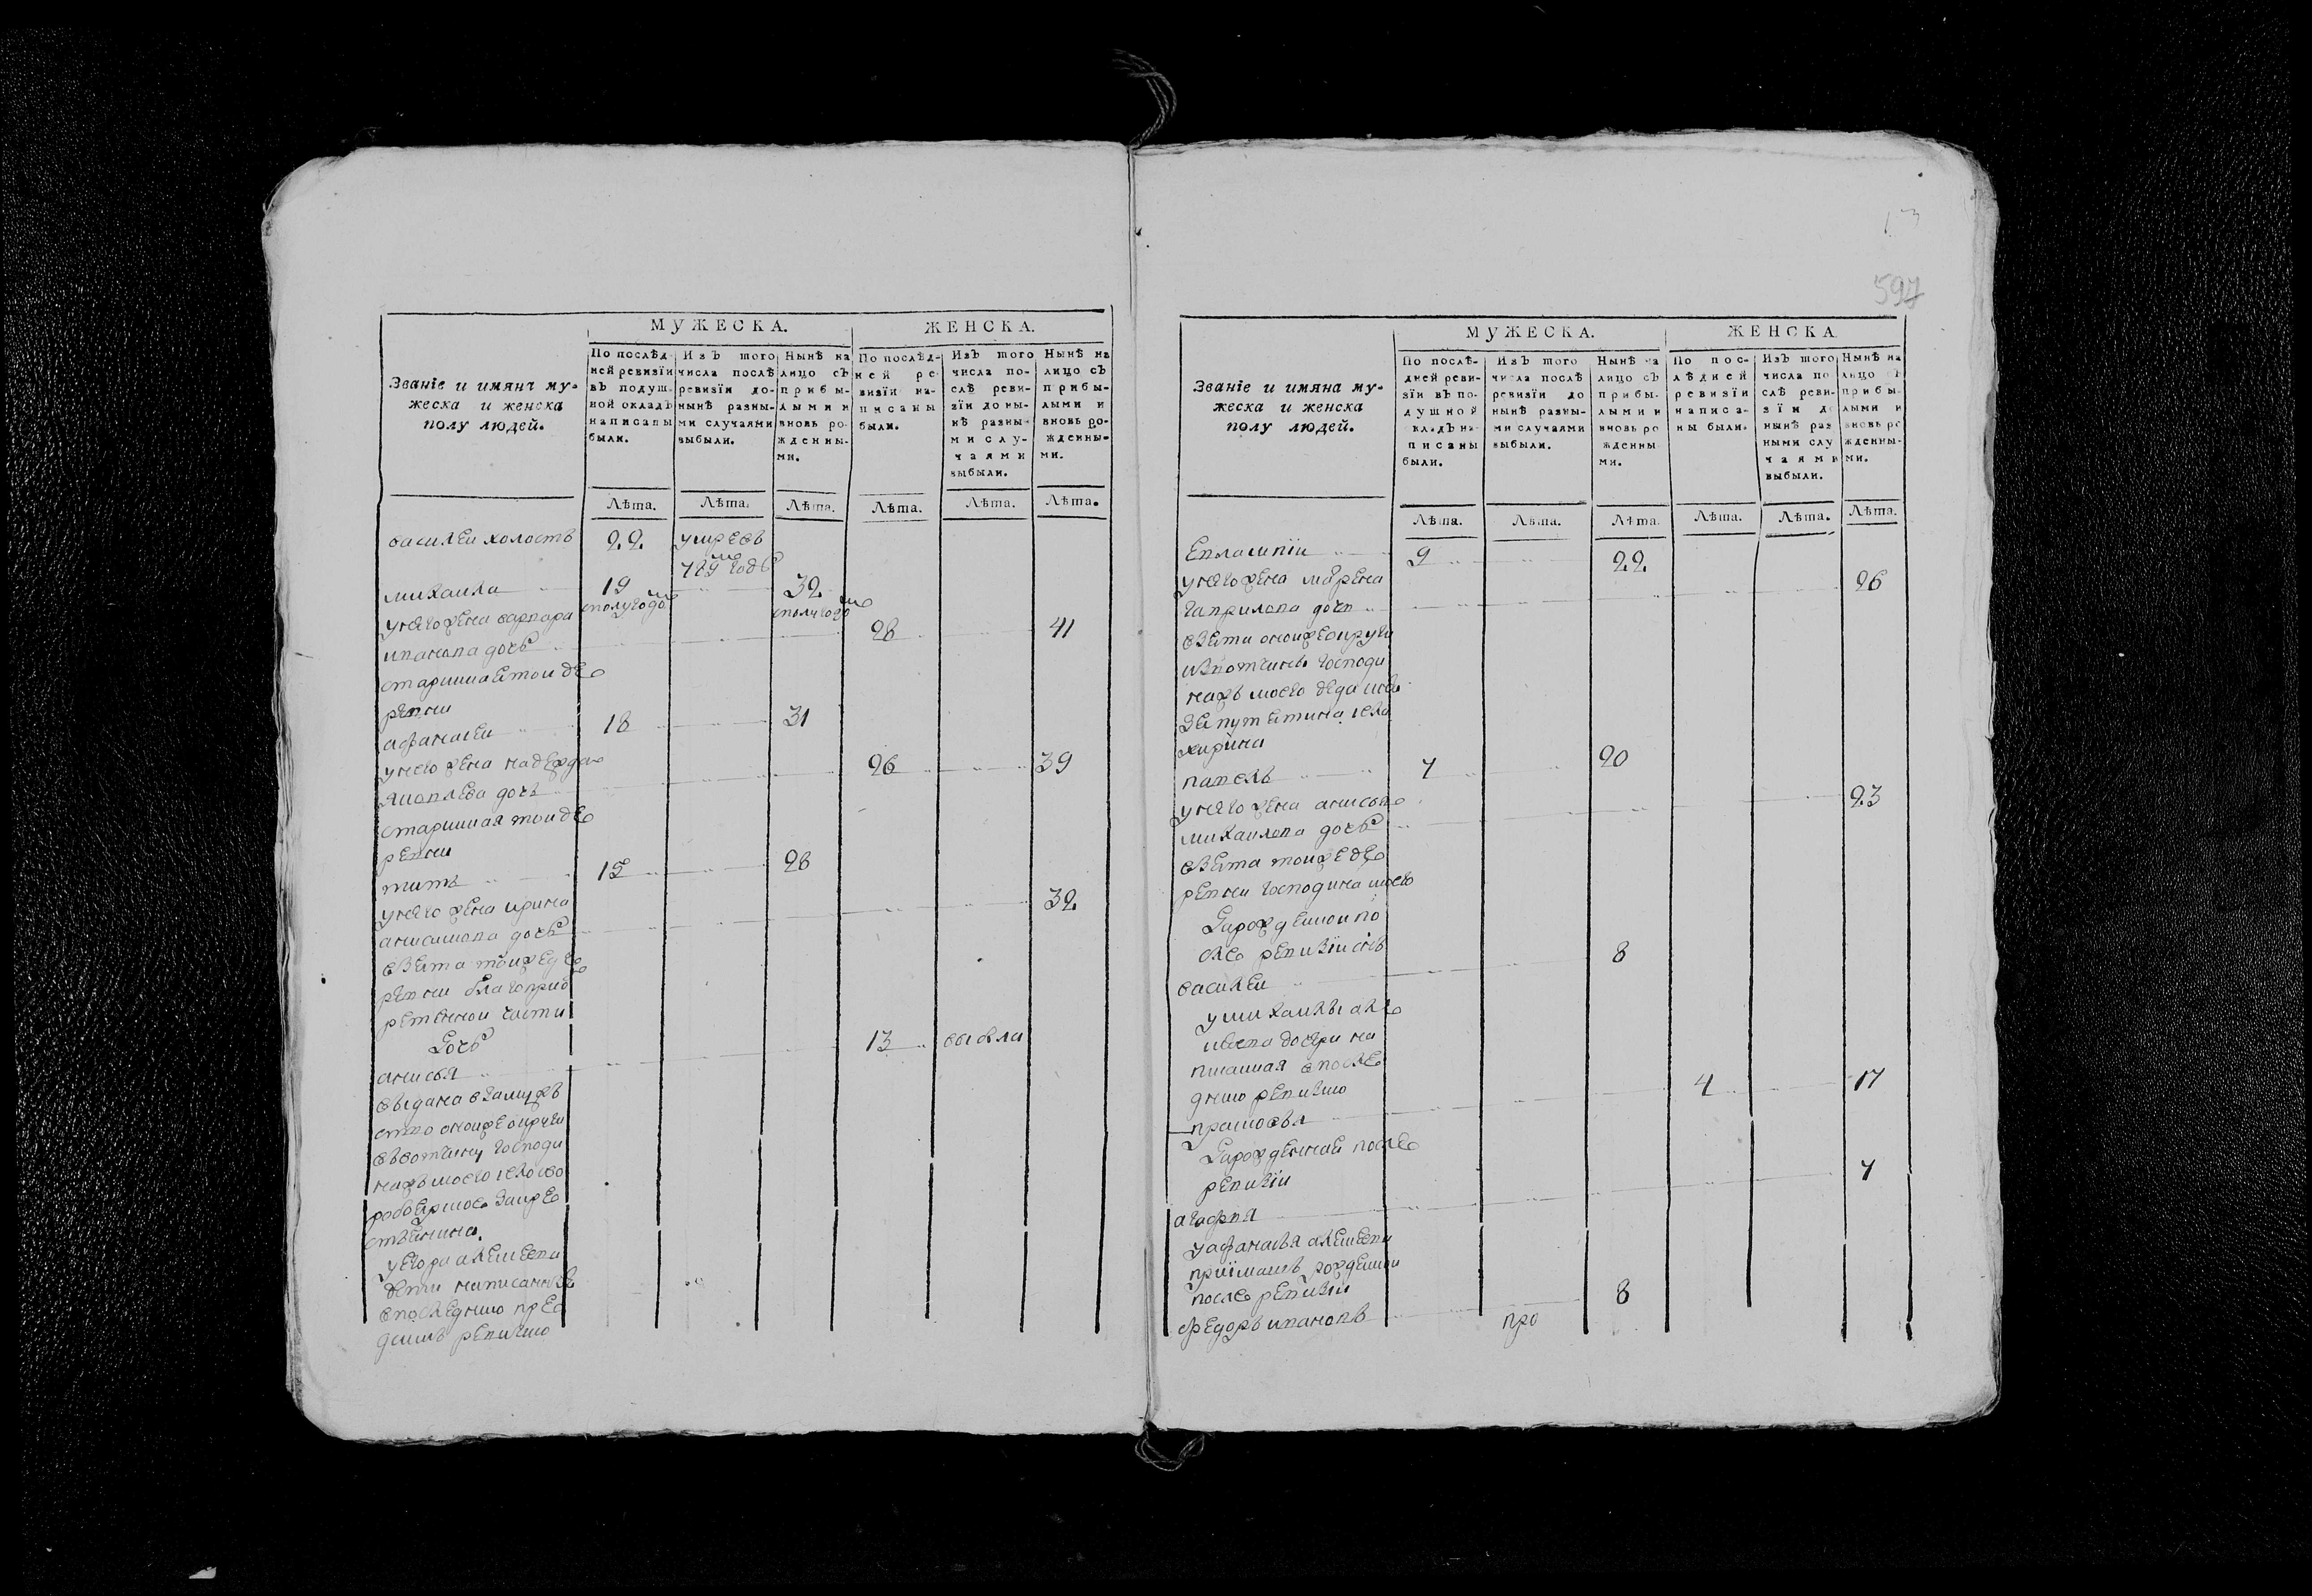 13
597
МУЖЕСКА.
ЖЕНСКА.
Званїе и имяна му-
жеска и женска
полу людей.
По послѣд
ней ревизїи
въ подуш
ной окладъ
написаны
были.
Изъ того
числа послѣ
ревизїи до-
нынѣ разны-
ми случаями
выбыли.
Нынѣ на
лицо съ
прибы-
лыми и
вновь ро-
жденны-
ми.
По послѣд-
ней ре-
визїи на-
писаны
были.
Изъ того
числа по-
слѣ реви-
зїи до ны-
нѣ разны-
ми слу-
чаями
выбыли.
Нынѣ на
лицо съ
прибы-
лыми и
вновь ро-
жденны-
ми.
Лѣта. Лѣта. Лѣта. Лѣта. Лѣта. Лѣта.
василеи холостъ 22 умре въ
789 годѣ
михаила 19 32
споlугодо споlугодо
унего жена варвара
иванова дочь 28 41
старинная тои де
ревни
афанасеи 18 31
унего жена надежда 26 39
яковлева дочь
старинная тои де
ревни
титъ 15 28
унего жена ирина 32
анисимова дочь
взета тоиже де
ревни благоприо
ретенной части
Дочь
анисья 13 выбыла
выдана взамуже
ство оноиже округи
ввотчину господи
нажъ моего село во
робьево
уегора алексеева
дети написанныя
впоследнюю пред
сим ревизию
МУЖЕСКА.
ЖЕНСКА
Званїе и имяна му-
жеска и женска
полу людей.
По послѣ-
дней реви-
зїи въ по-
душной
окладъ на-
писаны
были.
Изъ того
числа послѣ
ревизїи до
нынѣ разны-
ми случаями
выбыли.
Нынѣ на
лицо съ
прибы-
лыми и
вновь ро
жденны-
ми.
По пос-
лѣдней
ревизїи
написа-
ны были.
Изъ того
числа по
слѣ реви-
зїи до
нынѣ раз
ными слу
чаями
выбыли.
Нынѣ на
лицо съ
прибы-
лыми и
вновь ро
жденны-
ми.
Лѣта. Лѣта. Лѣта. Лѣта. Лѣта. Лѣта.
Евлампїи 9 22
унего жена марена 26
гаврилова дочь
взета оноиже округи
извотчины господи
нажъ моего деда
павелъ 7 20
унего жена анисья 23
михаилова дочь
взета тоиже де
ревни господина моего
Да рожденои по
сле ревизїи сынъ
василеи 8
умихаилы але
ксеева дочери на
писанная впосле
днюю ревизию
прасковья 4 17
Да рожденная после
ревизїи
агафья 7
уафанасья алексеева
приїмашъ рожденои
после ревизїи
федоръ ивановъ 8
про